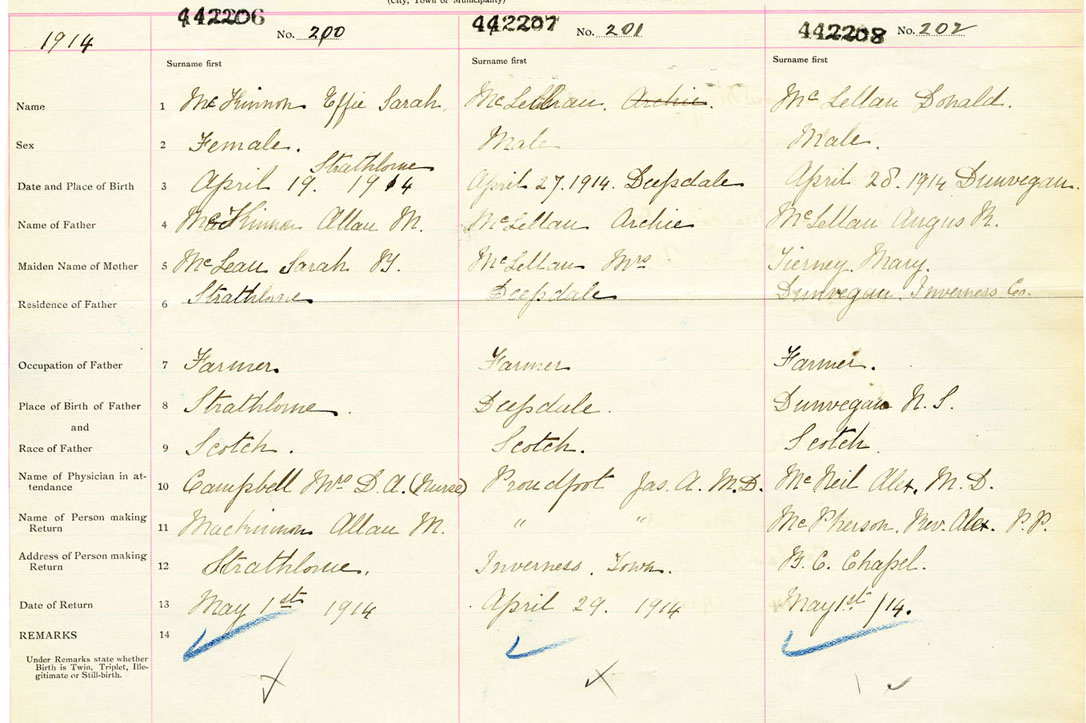 (City, Town or Municipality)
442206 442207 442208
1914 No. 200 No. 201 No. 202
Surname first Surname first Surname first
Name 1 McKinnon Effie Sarah. McLellan, Archie. McLellan Donald.
Sex 2 Female. Male Male.
Strathlorne
Date and Place of Birth 3 April 19. 1914 April 27. 1914. Deepdale April 28. 1914 Dunvegan.
Name of Father 4 McKinnon Allan M. McLellan Archie McLellan Angus R.
Maiden Name of Mother 5 McLean Sarah McLellan Mrs Tierney. Mary.
Residence of Father 6 Strathlorne Deepdale Dunvegan. Inverness Co.
Occupation of Father 7 Farmer. Farmer Farmer.
Place of Birth of Father 8 Strathlorne. Deepdale. Dunvegan N. S.
and
Race of Father 9 Scotch. Scotch. Scotch.
Name of Physician in at-
tendance 10 Campbell Mrs D. A. (Nurse) Proudfoot Jas. A. M. D. McNeil Alex. M. D.
Name of Person making
Return 11 MacKinnon Allan M. " " McPherson, Rev. Alex. P. P.
Address of Person making
Return 12 Strathlorne. Inverness. Town. B. C. Chapel.
Date of Return 13 May 1st 1914 April 29. 1914 May 1st /14.
REMARKS 14
Under Remarks state whether
Birth is Twin, Triplet, Ille-
gitimate or Still-birth.